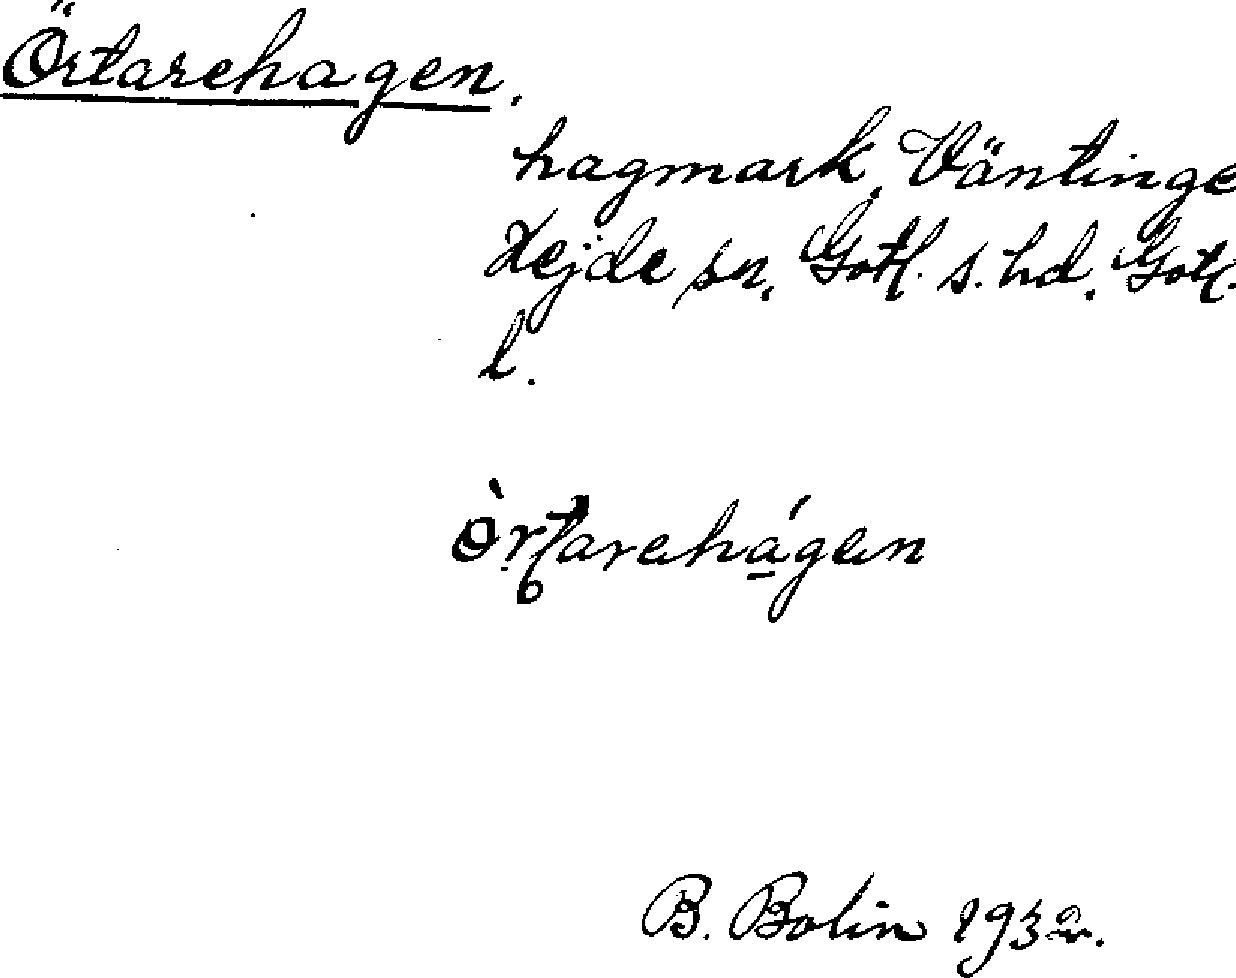 Örtarehagen.
hagmark, Väntinge
Hejde sn. Gotl. s. hd. Gotl.
l.
B. Bolin 1932.